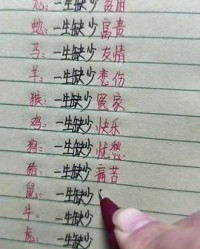 龙：一生缺少
蛇：一生缺少富贵
马：一生缺少友情
羊：一生缺少悲伤
猴：一生缺少
鸡：一生缺少快乐
狗：一生缺少忧愁
猪：一生缺少痛苦
鼠：一生缺少
牛：一生缺少
虎：一生缺少